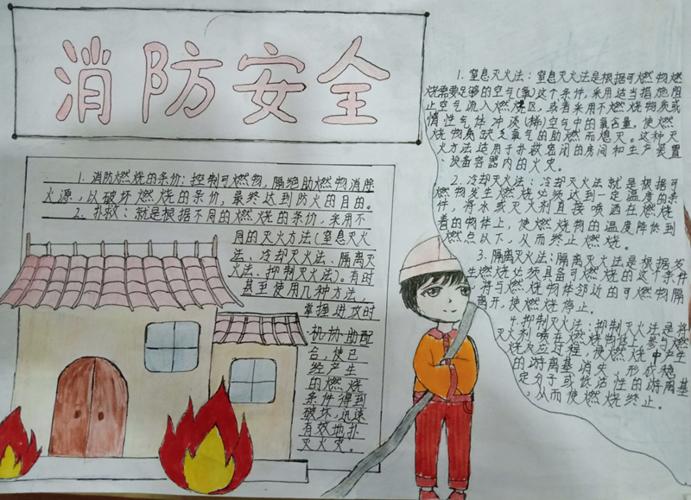 消防安全
1. 消防燃烧的条价：控制可燃物，隔绝助燃物消除
火源，以破坏燃烧的条价，最终达到防火的目的。
2. 扑救：就是根据不同的燃烧的条价，采用不
同的灭火方法（窒息灭火
法、冷却灭火法、隔离灭
火法、抑制灭火法）。有时
甚至使用几种方法，
掌握进攻时
机，协助配
合，使已
经产生
的燃烧
条件得到
破坏，迅速
有效地扑
灭火灾。
1. 窒息灭火法：窒息灭火法是根据可燃物燃
烧需要足够的空气（氧）这个条件，采用适当措施阻
止空气流入燃烧区，或者采用不燃烧物质或
惰性气体冲淡（稀）空气中的氧含量，使燃
烧物质缺乏氧气的助燃而熄灭。这种灭
火方法适用于扑救密闭的房间和生产装置
、设备容器内的火灾。
2. 冷却灭火法：冷却灭火法就是根据可
燃物发生燃烧必须达到一定温度的条
件，将水或灭火剂直接喷洒在燃烧
着的物体上，使燃烧物的温度降低到
燃点以下，从而终止燃烧。
3. 隔离灭火法：隔离灭火法是根据发
生燃烧必须具备可燃烧的这个条件
，将与燃烧物体邻近的可燃物隔
离开，使燃烧停止。
4. 抑制灭火法：抑制灭火法是将
灭火剂喷在燃烧物体上，参与燃
烧反应过程，使燃烧中产生
的游离基消失，形成稳
定分子或低活性的游离基
，从而使燃烧终止。